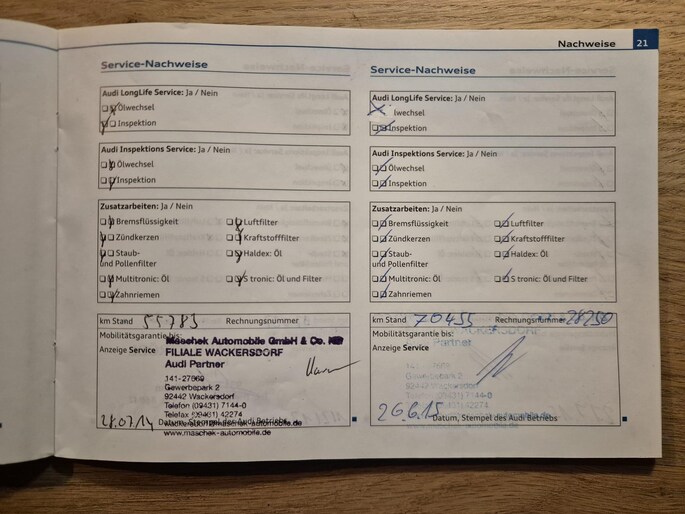 Nachweise 21
Service-Nachweise
Audi LongLife Service: Ja / Nein
Ölwechsel
Inspektion
Audi Inspektions Service: Ja / Nein
Ölwechsel
Inspektion
Zusatzarbeiten: Ja / Nein
Bremsflüssigkeit Luftfilter
Zündkerzen Kraftstofffilter
Staub- Haldex: Öl
und Pollenfilter
Multitronic: Öl S tronic: Öl und Filter
Zahnriemen
km Stand 55783 Rechnungsnummer
Mobilitätsgarantie bis:
Maschek Automobile GmbH & Co. KG
Anzeige Service
FILIALE WACKERSDORF
Audi Partner
Gewerbepark 2
92442 Wackersdorf
Telefon (09431) 7144-0
Telefax (09431) 42274
Datum, Stempel des Audi Betriebs
www.maschek-automobile.de
Service-Nachweise
Audi LongLife Service: Ja / Nein
lwechsel
Inspektion
Audi Inspektions Service: Ja / Nein
Ölwechsel
Inspektion
Zusatzarbeiten: Ja / Nein
Bremsflüssigkeit Luftfilter
Zündkerzen Kraftstofffilter
Staub- Haldex: Öl
und Pollenfilter
Multitronic: Öl S tronic: Öl und Filter
Zahnriemen
km Stand 70455 Rechnungsnummer 28250
Mobilitätsgarantie bis:
Partner
Anzeige Service
Gewerbepark 2
92442 Wackersdorf
(09431) 7144-0
26.6.15
Datum, Stempel des Audi Betriebs